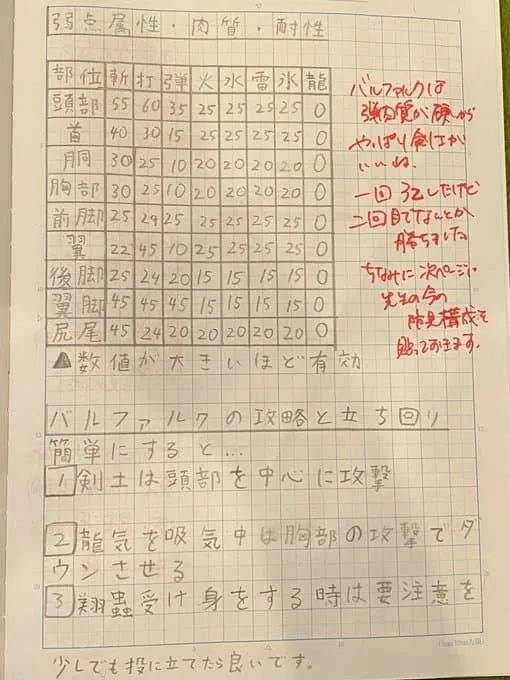 弱点属性・肉質・耐性
部位 斬 打 弾 火 水 雷 氷 龍
頭部 55 60 35 25 25 25 25 0
首 40 30 15 25 25 25 25 0
胴 30 25 10 20 20 20 20 0
胸部 30 25 10 20 20 20 20 0
前脚 25 24 25 25 25 25 25 0
翼 22 45 10 25 25 25 25 0
後脚 25 24 20 15 15 15 15 0
翼脚 45 45 45 15 15 15 15 0
尻尾 45 24 20 20 20 20 20 0
▲数値が大きいほど有効
バルファルクは
弾肉質が硬いから
やっぱり剣士が
いいね。
一回乙したけど
二回目でなんとか
勝ちました
ちなみに次ページに
先生の今の
防具構成を
貼っておきます。
バルファルクの攻略と立ち回り
簡単にすると…
1 剣士は頭部を中心に攻撃
2 龍気を吸気中は胸部の攻撃でダ
ウンさせる
3 翔蟲受け身をする時は要注意を
少しでも役に立てたら良いです。